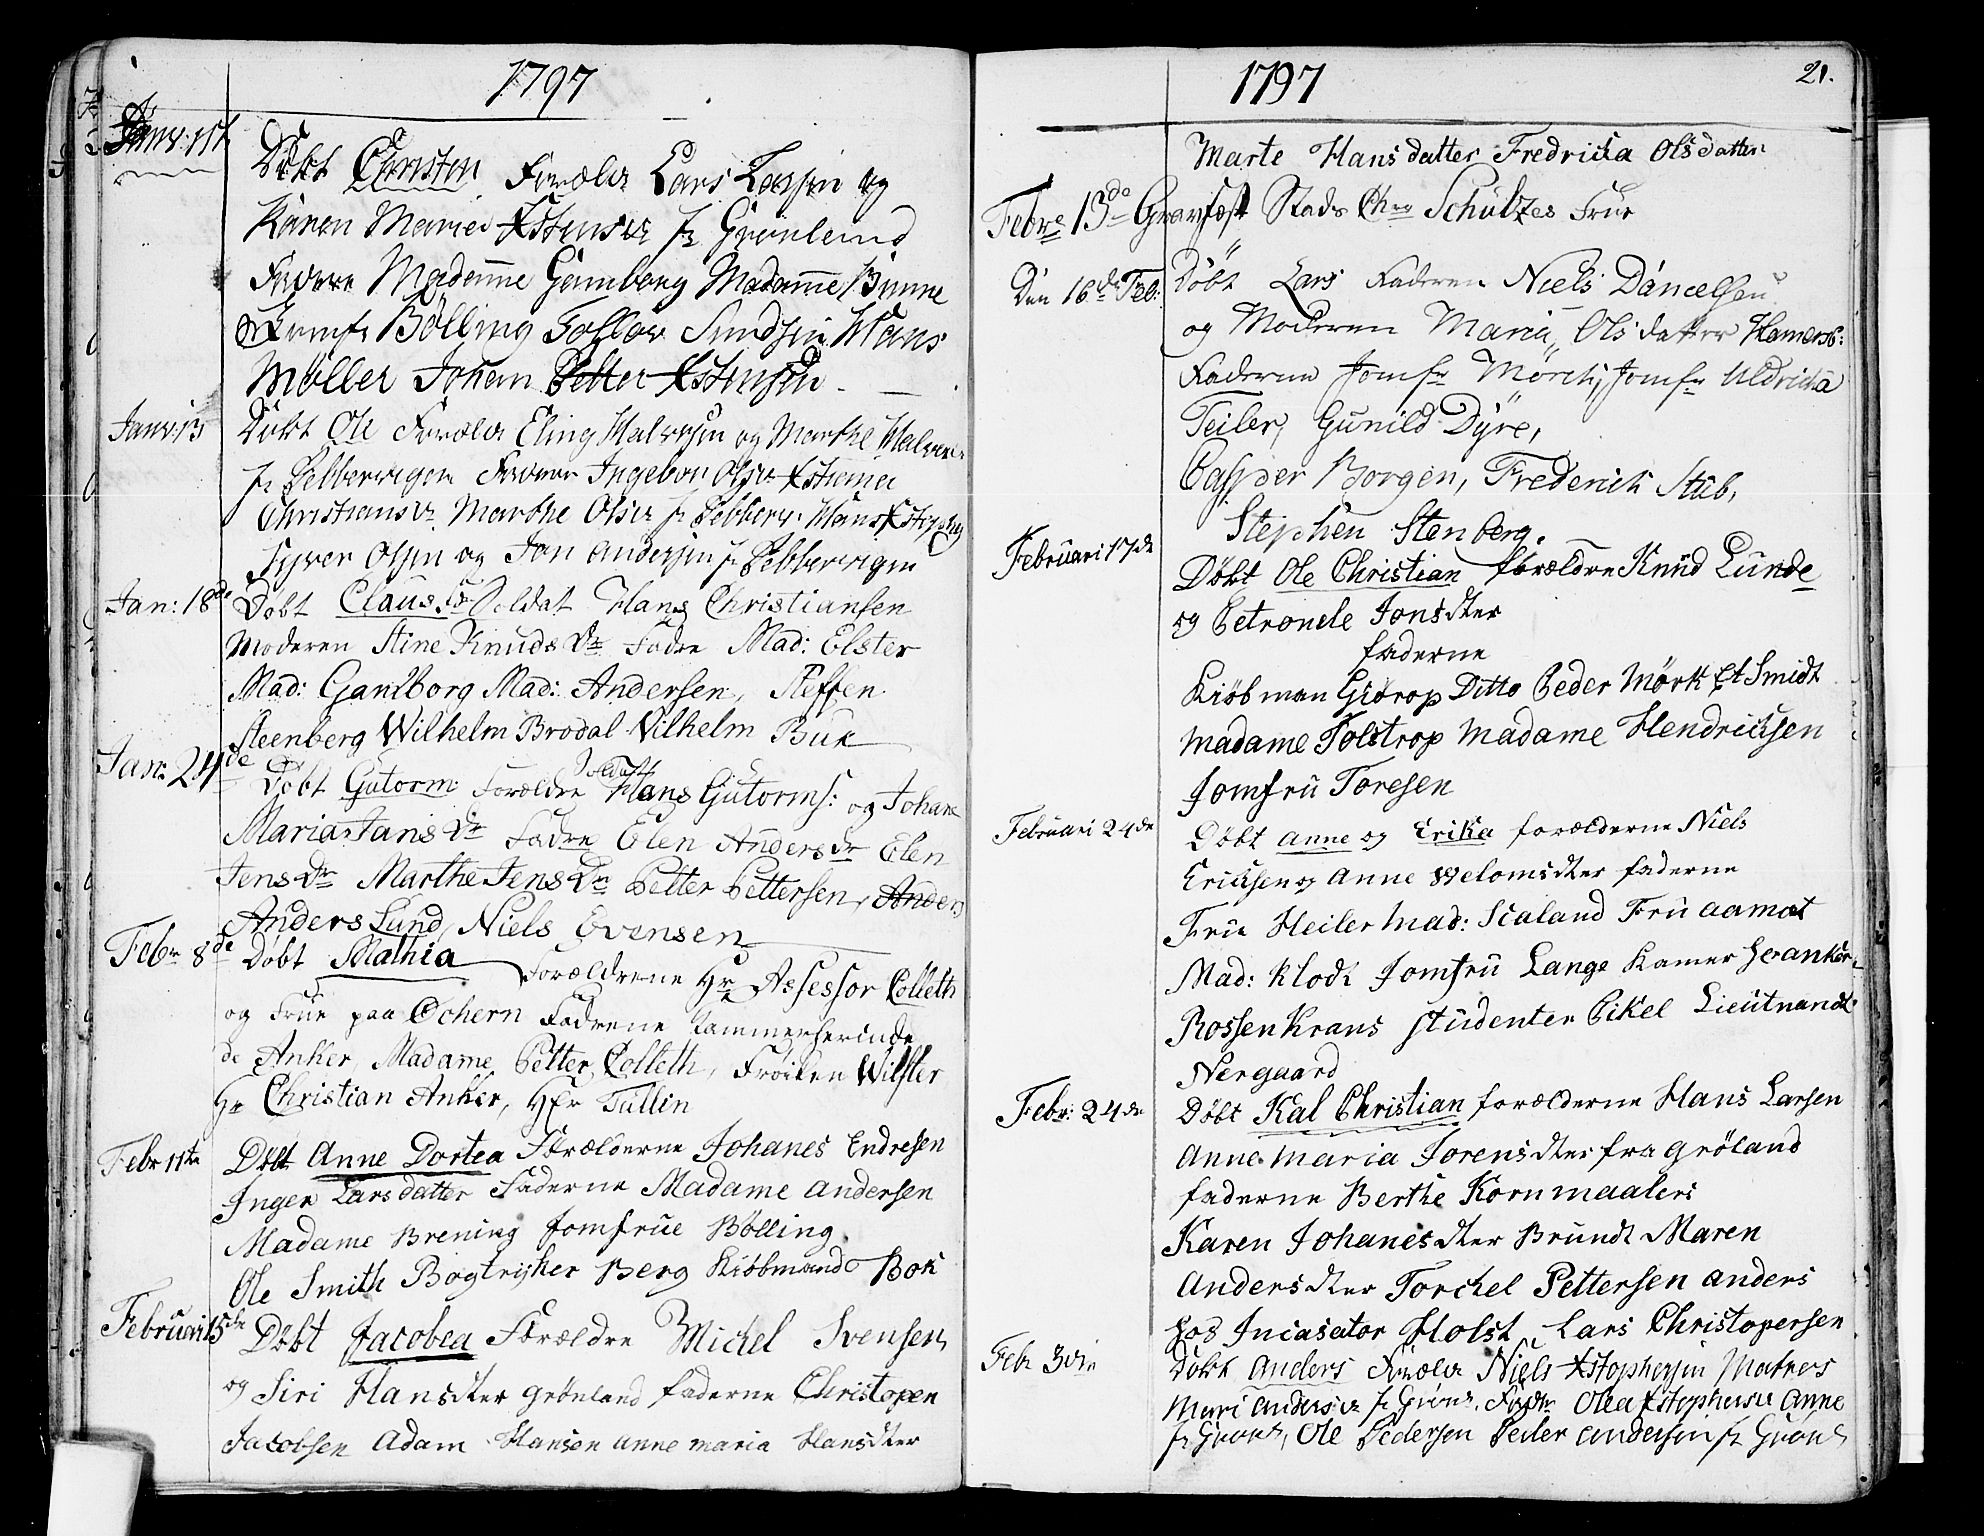 1797
Janv: 11te
Døbt Christen Forældr Lars Larsen og
Karen Maria Xstensdr fr Grönland
Faddere Madamme Gamborg Madamme Bimme
Jomfr Bölling Hans
Möller Johan Petter Xstensen
Janv: 13 Døbt Ole Forældr Eling Halvorsen og Marthe Halvor
fr Pebbervigen Faddere Ingebor Olsdr Xstiana
Christiansdr Marthe Olsdr fr Pebberv: Hans Xstophers
Syver Olsen og Jon Andersen fr Pebbervigen
Jan: 18de Døbt Claus, Fr Soldat Hans Christiansen
Moderen Stine Knuds Dr Fadre Mad: Elster
Mad: Gamborg Mad: Andersen, Steffen
Steenberg Wilhelm Brodal Vilhelm Buk
Jan: 24de Døbt Gutorm Forældre Soldat Hans Gutorms: og Johane
Maria Jans Dr Fadre Elen Anders dr Elen
Jens Dr Marthe Jens Dr Petter Pettersen, Anders
Anders Lund, Niels Evensen
Febr 8de Døbt Mathia Forældrene Hr Assessor Colleth
og Frue paa Ochern Fadrene Kammerherinde
de Anker, Madame Petter Colleth, Frøiken Wilster
Hr Christian Anker, Hr Tullin
Febr 11te Døbt Anne Dortea Forælderne Johanes Endresen
Inger Larsdatter Faderne Madame Andersen
Madame Brening Jomfrue Bölling
Ole Smith Bogtrijker Berg Kiöbmand Bok
Februari 15de Døbt Jacobea Forældre Michel Svensen
og Siri Hansdter grönland faderne Christopen
Jacobsen Adam Hansen anne maria Hansdter
1797
21.
Marte Hansdatter Fredricka Olsdatter
Febre 13de Gravfæst Stads Schültzes Frue
Den 16de Feb: Döbt Lars Faderen Niels Danielsen
og Moderen Maria, Olsdatter Hamersb:
Faderne Jomfr Mörch, Jomfr Uldricka
Teiler, Gunild Dÿre,
Casper Borgen, Frederich Stub,
Stephen Stenberg.
Februari 17de Døbt Ole Christian forældre Knud Lunde
og Petronele Jonsdter
faderne
Kiöbman Gidrop Ditto Peder Mörk Et Smidt
Madame Tolstrop Madame Hendrichsen
Jomfru Toresen
Februari 24de Døbt anne og Erika forælderne Niels
Erichsen og Anne Welomsdter faderne
Frue Heiler Mad: Sealand Fru aamot
Mad: Klodt Jomfru Lange Kamer Her anker
Rossenkrans studenter Pikel Lieutnandt
Nergaard
Febr: 24de Døbt Kal Christian forælderne Hans Larsen
Anne Maria Jorensdter fra gröland
faderne Berthe Kornmaalers
Karen Johanesdter Brundt Maren
Andersdter Torchel Pettersen anders
hos Incasator Holst Lars Christopersen
Døbt Anders Forældr Niels Xstophersen
Mari Andersdr fr Grönl. Fadr Olea Xstophersdr Anne
fr Grönl, Ole Pedersen Peder Andersen fr Grönl